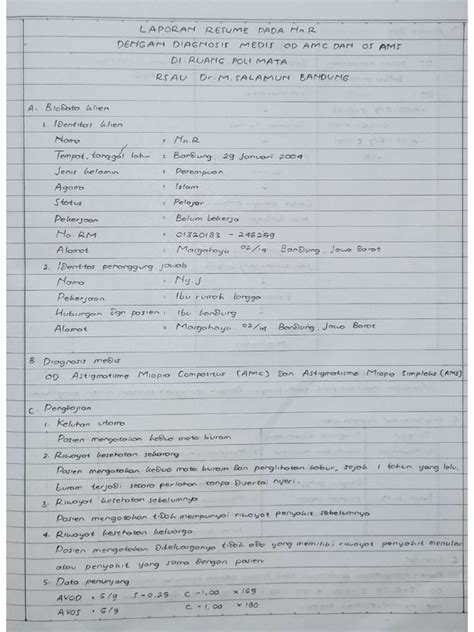 LAPORAN RESUME PADA Nn.R
DENGAN DIAGNOSIS MEDIS OD AMC DAN OS AMS
DI RUANG POLI MATA
RSAU Dr. M. SALAMUN BANDUNG
A. Biodata klien
1. Identitas klien
Nama : Nn.R
Tempat, tanggal lahir : Bandung, 29 Januari 2004
Jenis kelamin : Perempuan
Agama : Islam
Status : Pelajar
Pekerjaan : Belum bekerja
No. RM : 01320183 - 248259
Alamat : Margahayu 02/14 Bandung, Jawa Barat
2. Identitas penanggung jawab
Nama : Ny.J
Pekerjaan : Ibu rumah tangga
Hubungan dan pasien : Ibu kandung
Alamat : Margahayu 02/14 Bandung, Jawa Barat
B. Diagnosis medis
OD Astigmatisme Miopia Compositus (AMC) Dan Astigmatisme Miopia Simpleks (AMS)
C. Pengkajian
1. Keluhan utama
Pasien mengatakan kedua mata buram
2. Riwayat kesehatan sekarang
Pasien mengatakan kedua mata buram dan penglihatan kabur, sejak 1 tahun yang lalu.
buram terjadi secara perlahan tanpa disertai nyeri.
3. Riwayat kesehatan sebelumnya
Pasien mengatakan tidak mempunyai riwayat penyakit sebelumnya
4. Riwayat kesehatan keluarga
Pasien mengatakan dikeluarganya tidak ada yang memiliki riwayat penyakit menular
atau penyakit yang sama dengan pasien
5. Data penunjang
AVOD = 6/9 S - 0.25 C - 1,00 x 165
AVOS = 6/9 C - 1,00 x 180